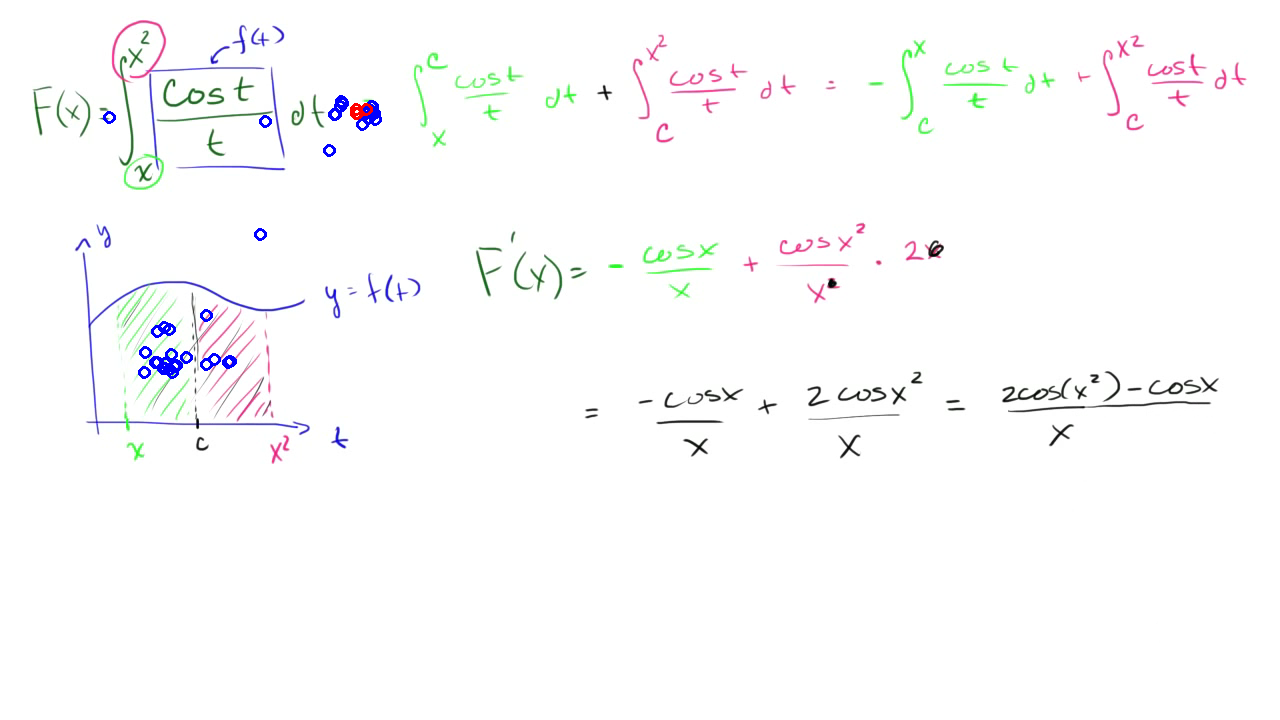 F(x) = ∫ₓ^x² cos t / t dt = ∫ₓ^c cos t / t dt + ∫_c^x² cos t / t dt = - ∫_c^x cos t / t dt + ∫_c^x² cos t / t dt
f(t)
y
y = f(t)
x c x² t
F'(x) = - cos x / x + cos x² / x² · 2x
= -cos x / x + 2 cos x² / x = 2cos(x²) - cos x / x